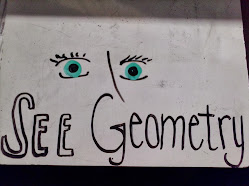 SEE Geometry